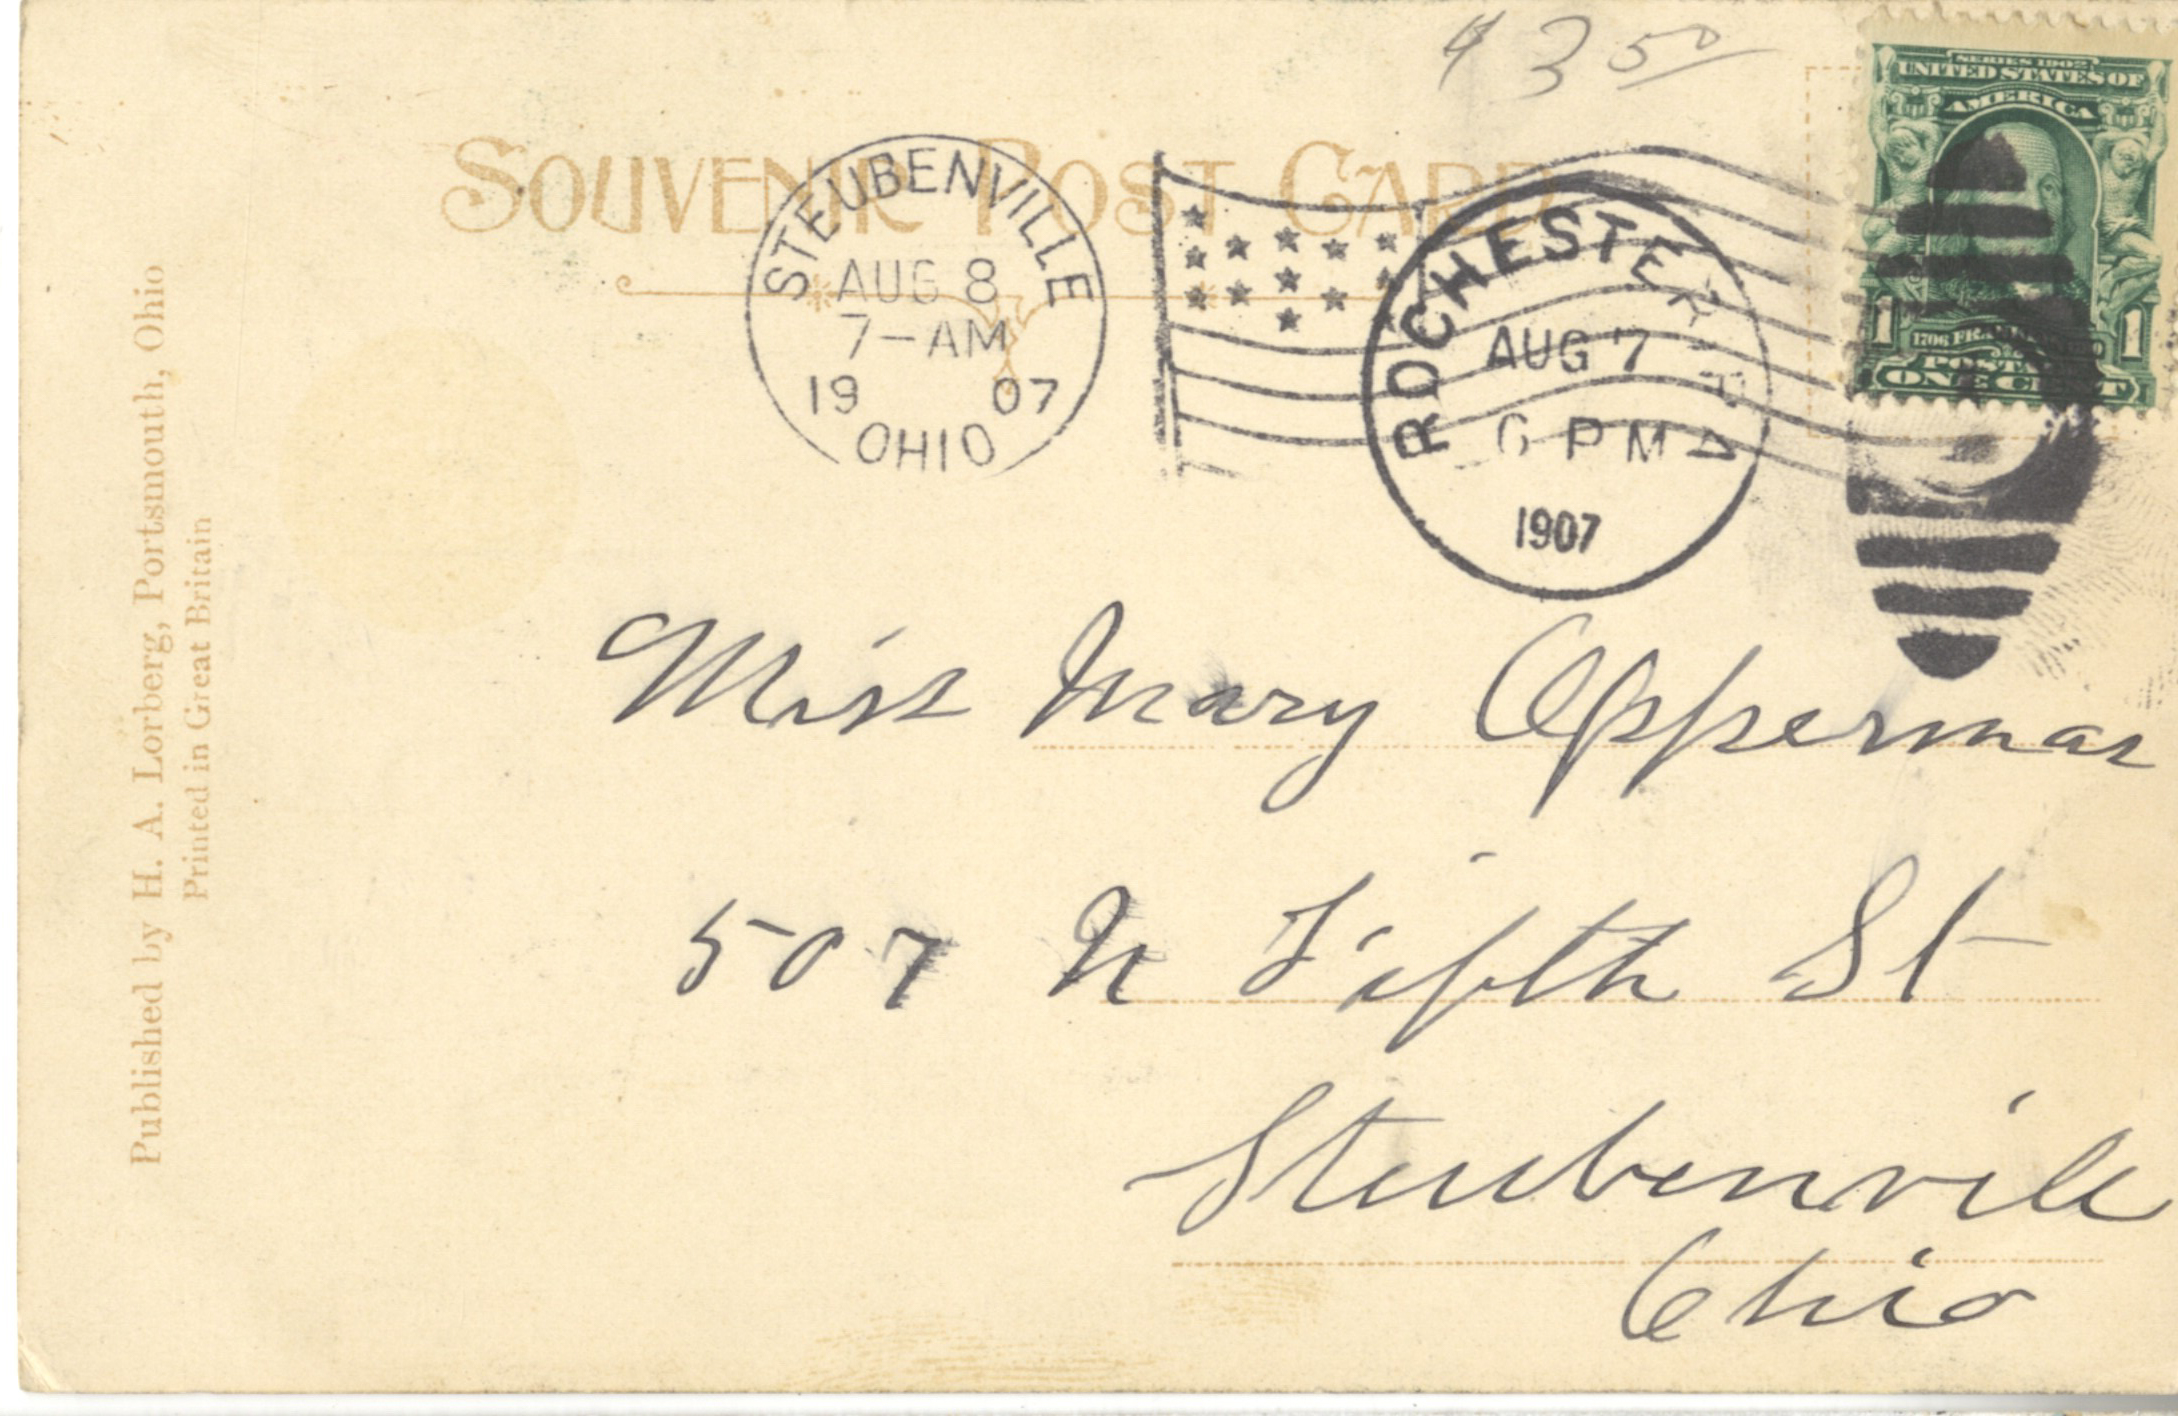 $3 50
SERIES 1902
UNITED STATES OF
AMERICA
SOUVENIR POST CARD
STEUBENVILLE
AUG 8
7-AM
19 07
OHIO
ROCHESTER PA
AUG 7
6 PM
1907
1 1
1706 FRANKLIN
POSTAGE
ONE CENT
Miss Mary Opperman
507 N Fifth St
Steubenville
Ohio
Published by H. A. Lorberg, Portsmouth, Ohio
Printed in Great Britain